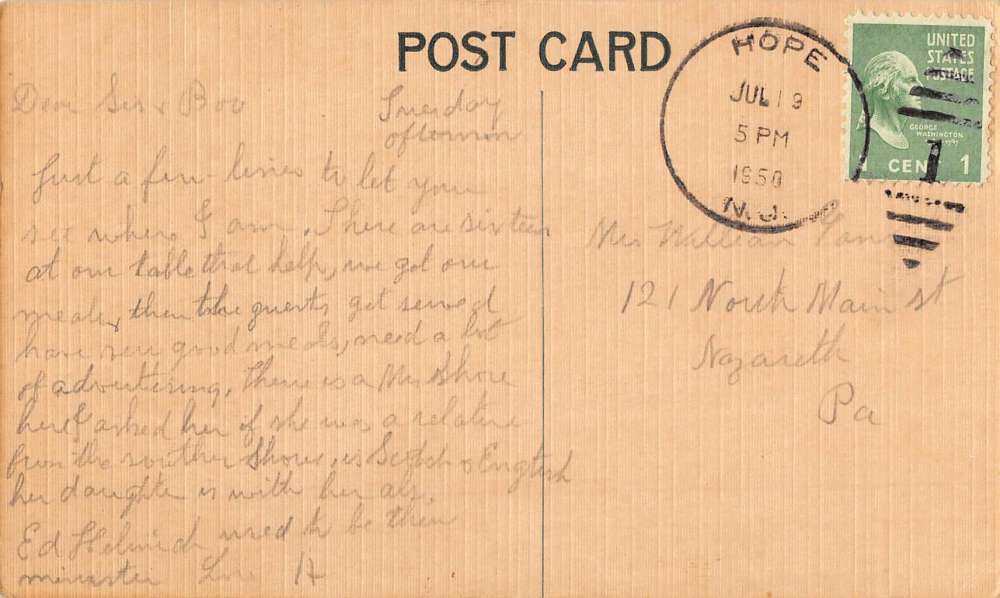 POST CARD
HOPE
JUL 19
5 PM
1950
N.J.
UNITED
STATES
POSTAGE
GEORGE
WASHINGTON
1 CENT 1
1
Dear Sis & Bro
Tuesday
afternoon
Just a few lines to let you
see where I am. There are sixteen
at our table that help, we get our
meals, then the guests get served
have very good meals, need a lot
of advertising. There is a Mrs Shore
here I asked her if she was a relative
from the Shores, is Scotch & English
her daughter is with her
Ed Helmich used to be their
minister
Mrs William
121 North Main st
Nazareth
Pa